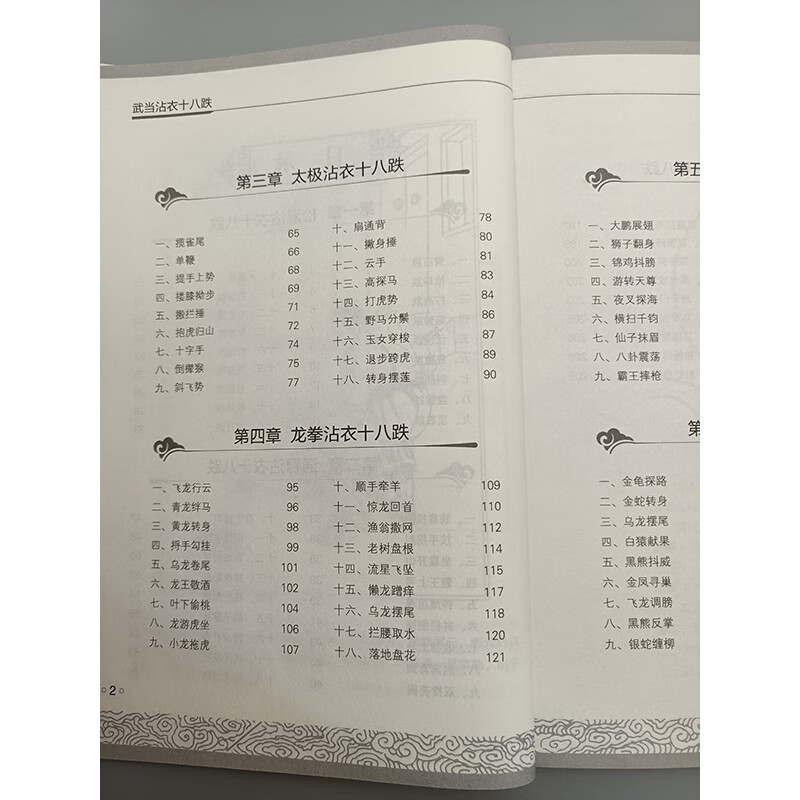 武当沾衣十八跌
第三章 太极沾衣十八跌
一、揽雀尾 65
二、单鞭 66
三、提手上势 68
四、搂膝拗步 69
五、搬拦捶 71
六、抱虎归山 72
七、十字手 74
八、倒撵猴 75
九、斜飞势 77
十、扇通背 78
十一、撇身捶 80
十二、云手 81
十三、高探马 83
十四、打虎势 84
十五、野马分鬃 86
十六、玉女穿梭 87
十七、退步跨虎 89
十八、转身摆莲 90
第四章 龙拳沾衣十八跌
一、飞龙行云 95
二、青龙绊马 96
三、黄龙转身 98
四、捋手勾挂 99
五、乌龙卷尾 101
六、龙王敬酒 102
七、叶下偷桃 104
八、龙游虎坐 106
九、小龙拖虎 107
十、顺手牵羊 109
十一、惊龙回首 110
十二、渔翁撒网 112
十三、老树盘根 114
十四、流星飞坠 115
十五、懒龙蹭痒 117
十六、乌龙摆尾 118
十七、拦腰取水 120
十八、落地盘花 121
2
第五
一、大鹏展翅
二、狮子翻身
三、锦鸡抖膀
四、游转天尊
五、夜叉探海
六、横扫千钧
七、仙子抹眉
八、八卦震荡
九、霸王摔枪
第
一、金龟探路
二、金蛇转身
三、乌龙摆尾
四、白猿献果
五、黑熊抖威
六、金凤寻巢
七、飞龙调膀
八、黑熊反掌
九、银蛇缠柳